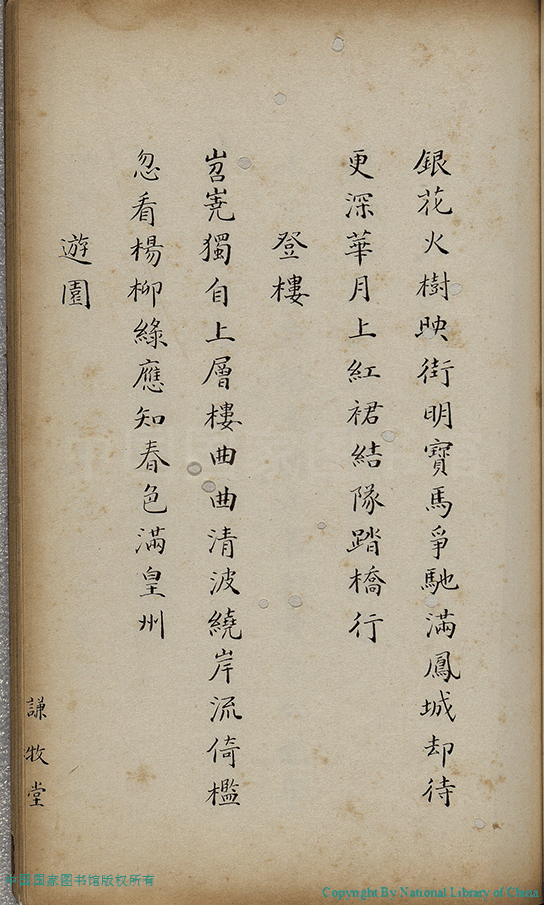 銀花火樹映街明寶馬爭馳滿鳳城却待
更深華月上紅裙結隊踏橋行
登樓
岧嶤獨自上層樓曲曲清波繞岸流倚檻
忽看楊柳綠應知春色滿皇州
遊園
謙牧堂
中国国家图书馆版权所有
Copyright By National Library of China